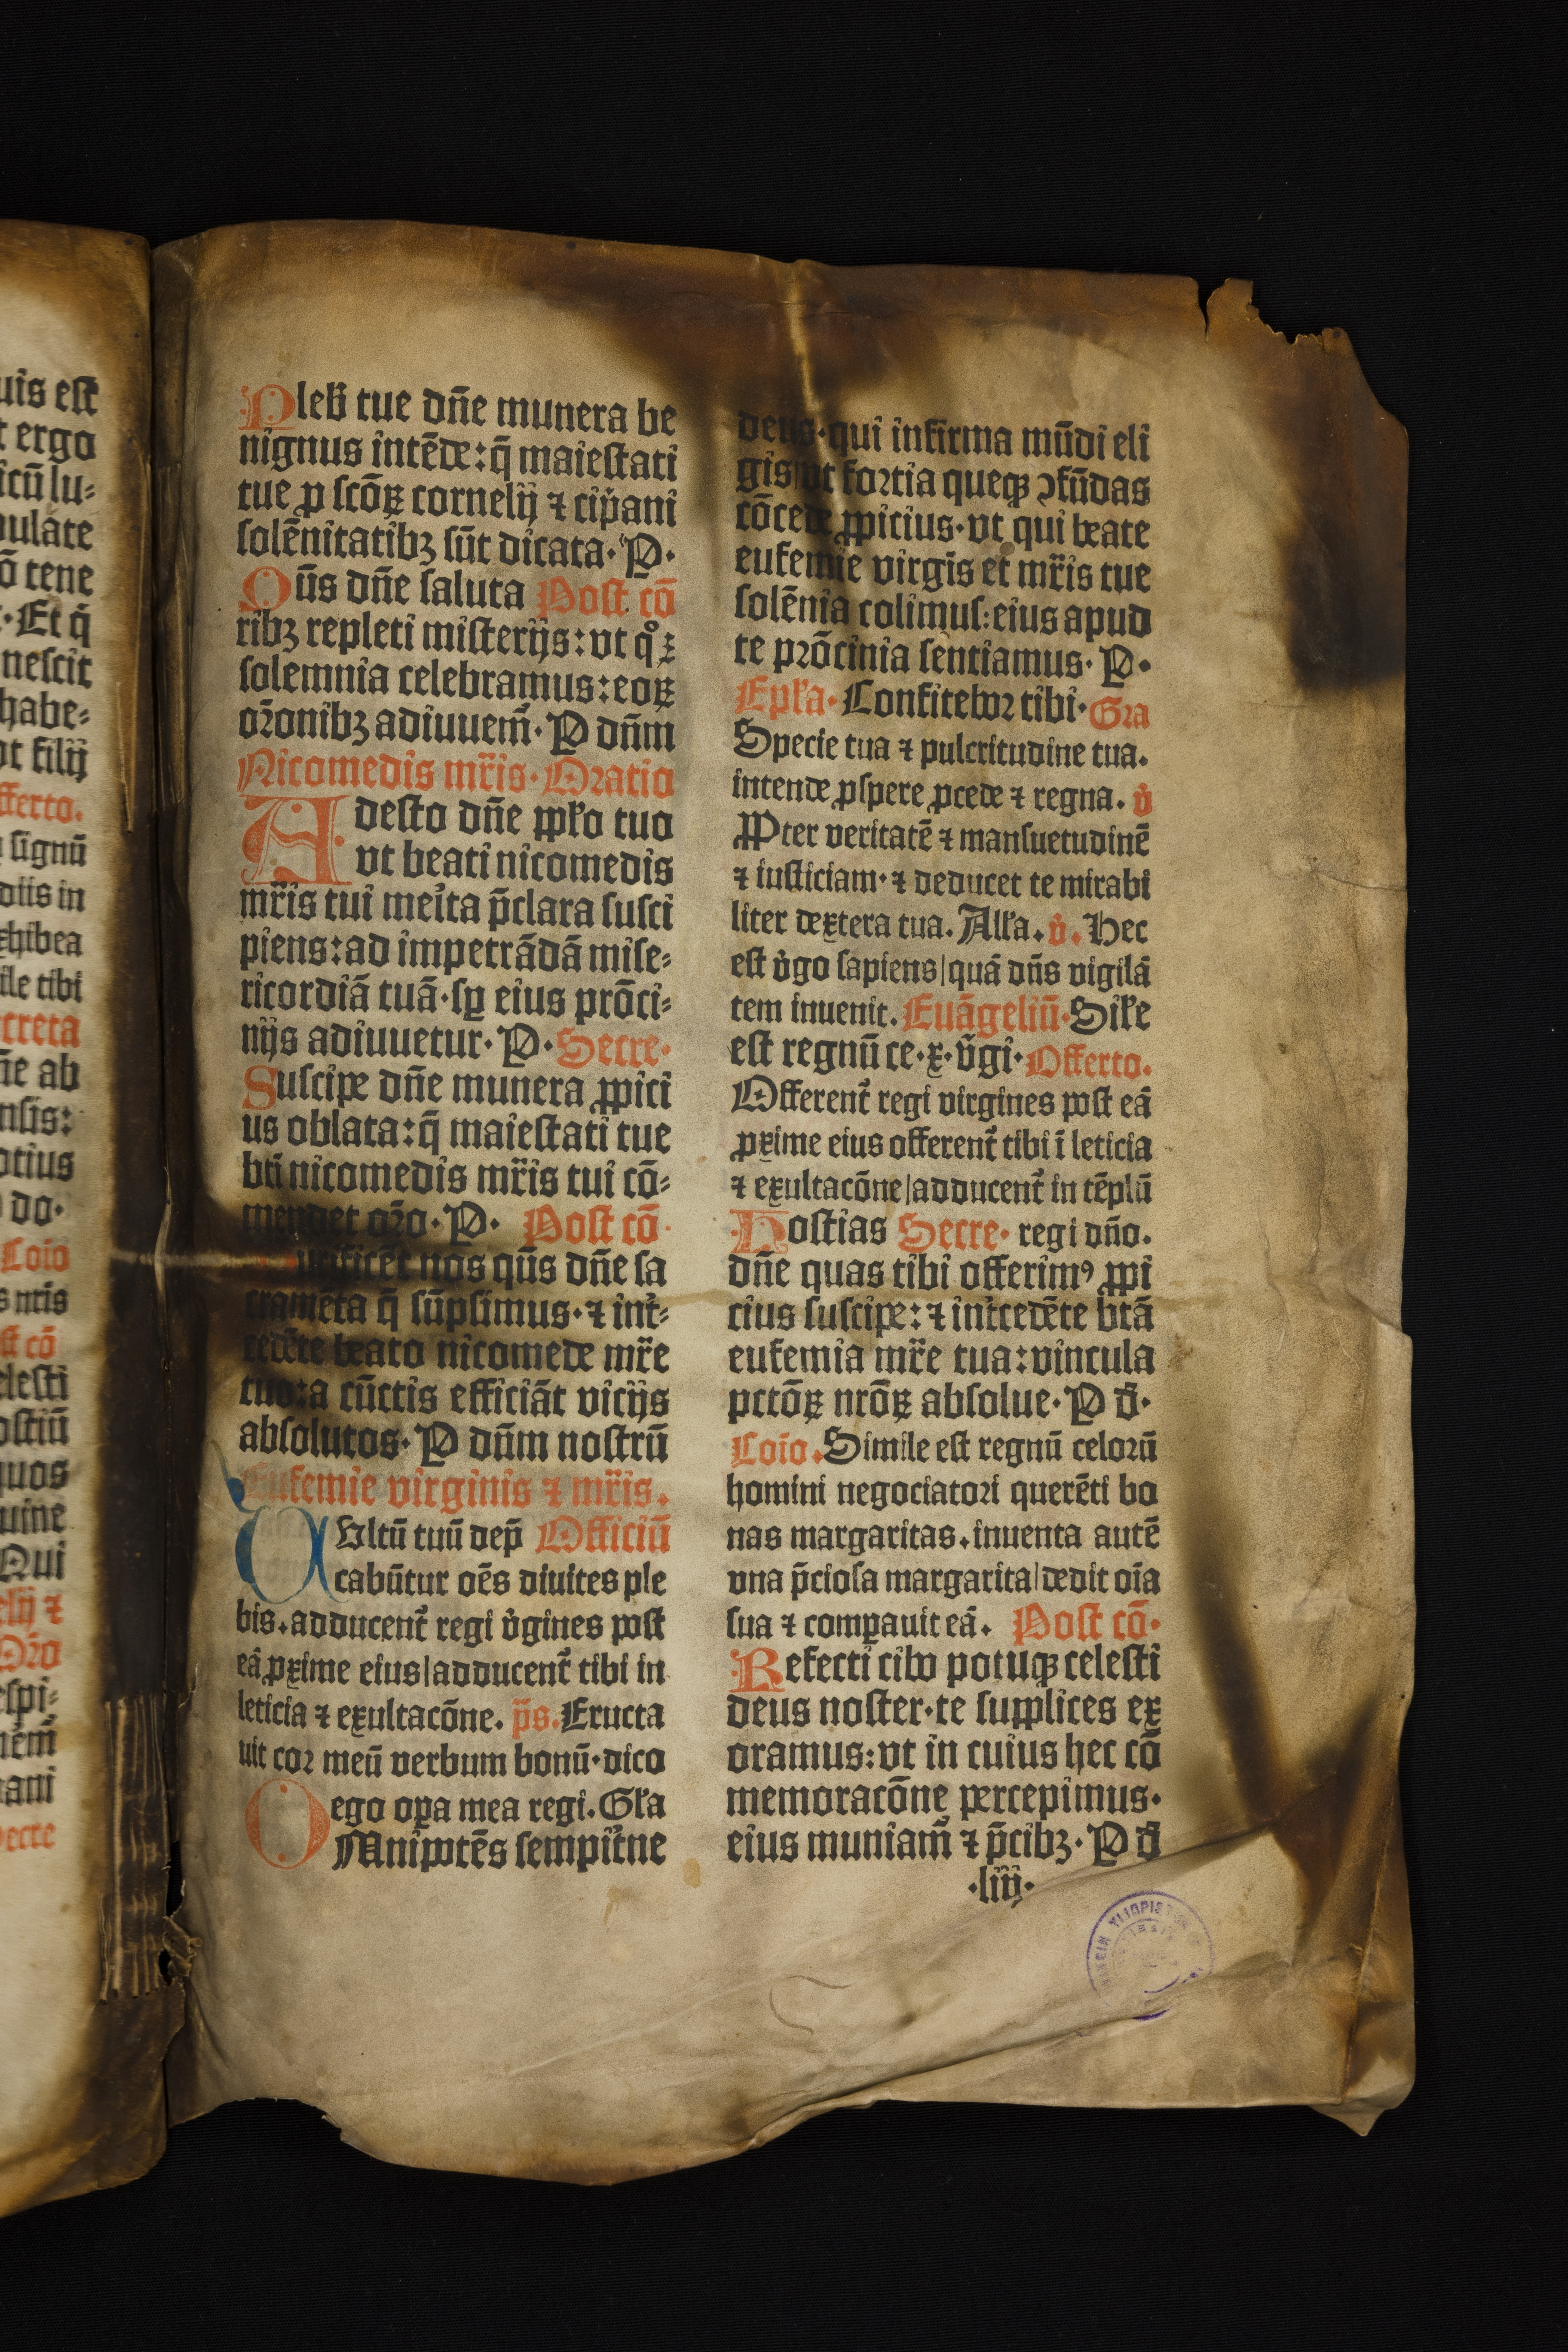 uis est
t ergo
icũ lu-
pulate
õ tene
·Et q̃
nescit
habe-
ot filij
fferto.
signũ
diis in
xhibea
ile tibi
ecreta
ñe ab
nsis:
otius
do·
Cõio
s nris
st cõ
elesti
ostiũ
quos
uine
Qui
elij ⁊
Oro
espi-
nẽm
ani
ecre
Pleb̃ tue dñe munera be
nignus intẽde: q̃ maiestati
tue ꝑ scõꝝ cornelij ⁊ cip̃ani
solẽnitatibꝫ sũt dicata· P·
Qũs dñe saluta Post cõ
ribꝫ repleti misterijs: vt qͦꝝ
solemnia celebramus: eoꝝ
oꝛonibꝫ adiuuem̃· P dñm
Nicomedis mr̃is· Oratio
Adesto dñe pp̃lo tuo
vt beati nicomedis
mr̃is tui merita p̃clara susci
piens: ad impetrãdã mise-
ricordiã tuã· sꝑ eius prõci-
nijs adiuuetur· P· Secre·
Suscipe dñe munera ꝓpici
us oblata: q̃ maiestati tue
bti nicomedis mr̃is tui cõ-
mendet oꝛo· P· Post cõ·
Purificet nos qũs dñe sa
cramẽta q̃ sũpsimus· ⁊ int̉-
cedẽte beato nicomede mr̃e
tuo: a cũctis efficiãt vicijs
absolutos· P dñm nostrũ
Eufemie virginis ⁊ mr̃is.
Vltũ tuũ dep̃ Officiũ
cabũtur oẽs diuites ple
bis. adducent̉ regi v̉gines post
eã ꝓxime eius|adducent̉ tibi in
leticia ⁊ exultacõne. p̃s. Eructa
uit cor meũ verbum bonũ· dico
ego oꝑa mea regi. Gl̃a
OMnipotẽs sempit̉ne
deus· qui infirma mũdi eli
gis vt fortia queqꝫ ↄfũdas
cõcede ꝓpicius· vt qui beate
eufemie virgis et mr̃is tue
solẽnia colimus: eius apud
te prõcinia sentiamus· P·
Epl̃a· Confitebor tibi· Gra
Specie tua ⁊ pulcritudine tua.
intende ꝓspere ꝓcede ⁊ regna. v̉
PPter veritatẽ ⁊ mansuetudinẽ
⁊ iusticiam· ⁊ deducet te mirabi
liter dextera tua. All̃a. v̉. Hec
est v̉go sapiens|quã dñs vigilã
tem inuenit. Euãgeliũ· Sil̃e
est regnũ ce· x· v̉gi· Offerto.
Offerent̉ regi virgines post eã
ꝓxime eius offerent̉ tibi ĩ leticia
⁊ exultacõne|adducent̉ in tẽplũ
Hostias Secre· regi dño.
dñe quas tibi offerimꝰ ꝓpi
cius suscipe: ⁊ int̉cedẽte btã
eufemia mr̃e tua: vincula
pctõꝝ nrõꝝ absolue· P d̃·
Cõio. Simile est regnũ celorũ
homini negociatori querẽti bo
nas margaritas. inuenta autẽ
vna p̃ciosa margarita|dedit oĩa
sua ⁊ compauit eã. Post cõ·
Refecti cibo potuqꝫ celesti
deus noster· te supplices ex
oramus: vt in cuius hec cõ
memoracõne percepimus·
eius muniam̃ ⁊ p̃cibꝫ· P d̃
·liij·